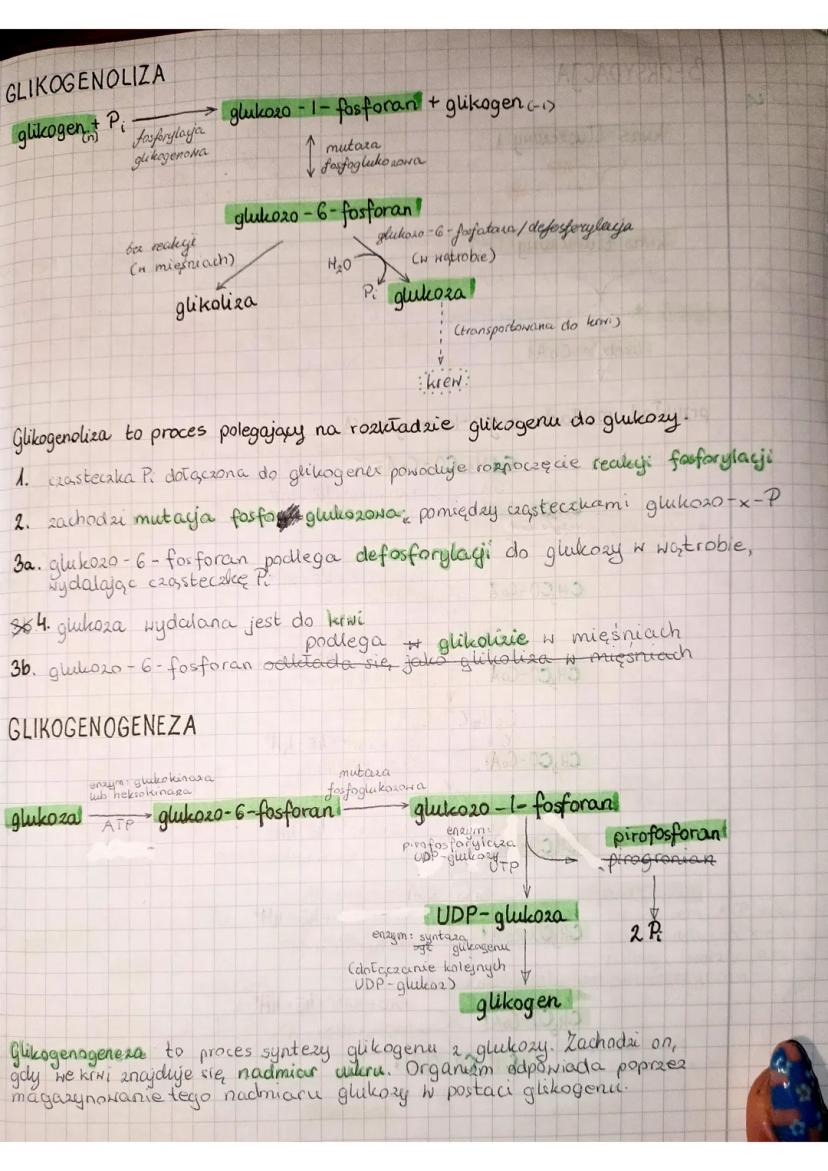 GLIKOGENOLIZA
glikogen(n) + Pi → glukozo-1-fosforan + glikogen(-1)
fosforylaza
glikogenowa
mutaza
fosfoglukozowa
glukozo-6-fosforan
glukozo-6-fosfataza/defosforylacja
(w wątrobie)
bez reakcji
(w mięśniach)
H₂O
Pi
glikoliza
glukoza
(transportowana do krwi)
krew
Glikogenoliza to proces polegający na rozkładzie glikogenu do glukozy.
1. cząsteczka Pi dołączona do glikogenu powoduje rozpoczęcie reakcji fosforylacji
2. zachodzi mutacja fosfoglukozowa pomiędzy cząsteczkami glukozo-x-P
3a. glukozo-6-fosforan podlega defosforylacji do glukozy w wątrobie,
wydalając cząsteczkę Pi
4. glukoza wydalana jest do krwi
podlega glikolizie w mięśniach
3b. glukozo-6-fosforan odkłada się jako glikoliza w mięśniach
GLIKOGENOGENEZA
enzym: glukokinaza
lub heksokinaza
mutaza
fosfoglukozowa
glukoza → glukozo-6-fosforan → glukozo-1-fosforan
ATP
enzym:
pirofosforylaza
UDP-glukozy
UTP
pirofosforan
pirogronian
2 Pi
UDP-glukoza
enzym: syntaza
glikogenu
(dołączanie kolejnych
UDP-glukoz)
glikogen
Glikogenogeneza to proces syntezy glikogenu z glukozy. Zachodzi on,
gdy we krwi znajduje się nadmiar cukru. Organizm odpowiada poprzez
magazynowanie tego nadmiaru glukozy w postaci glikogenu.